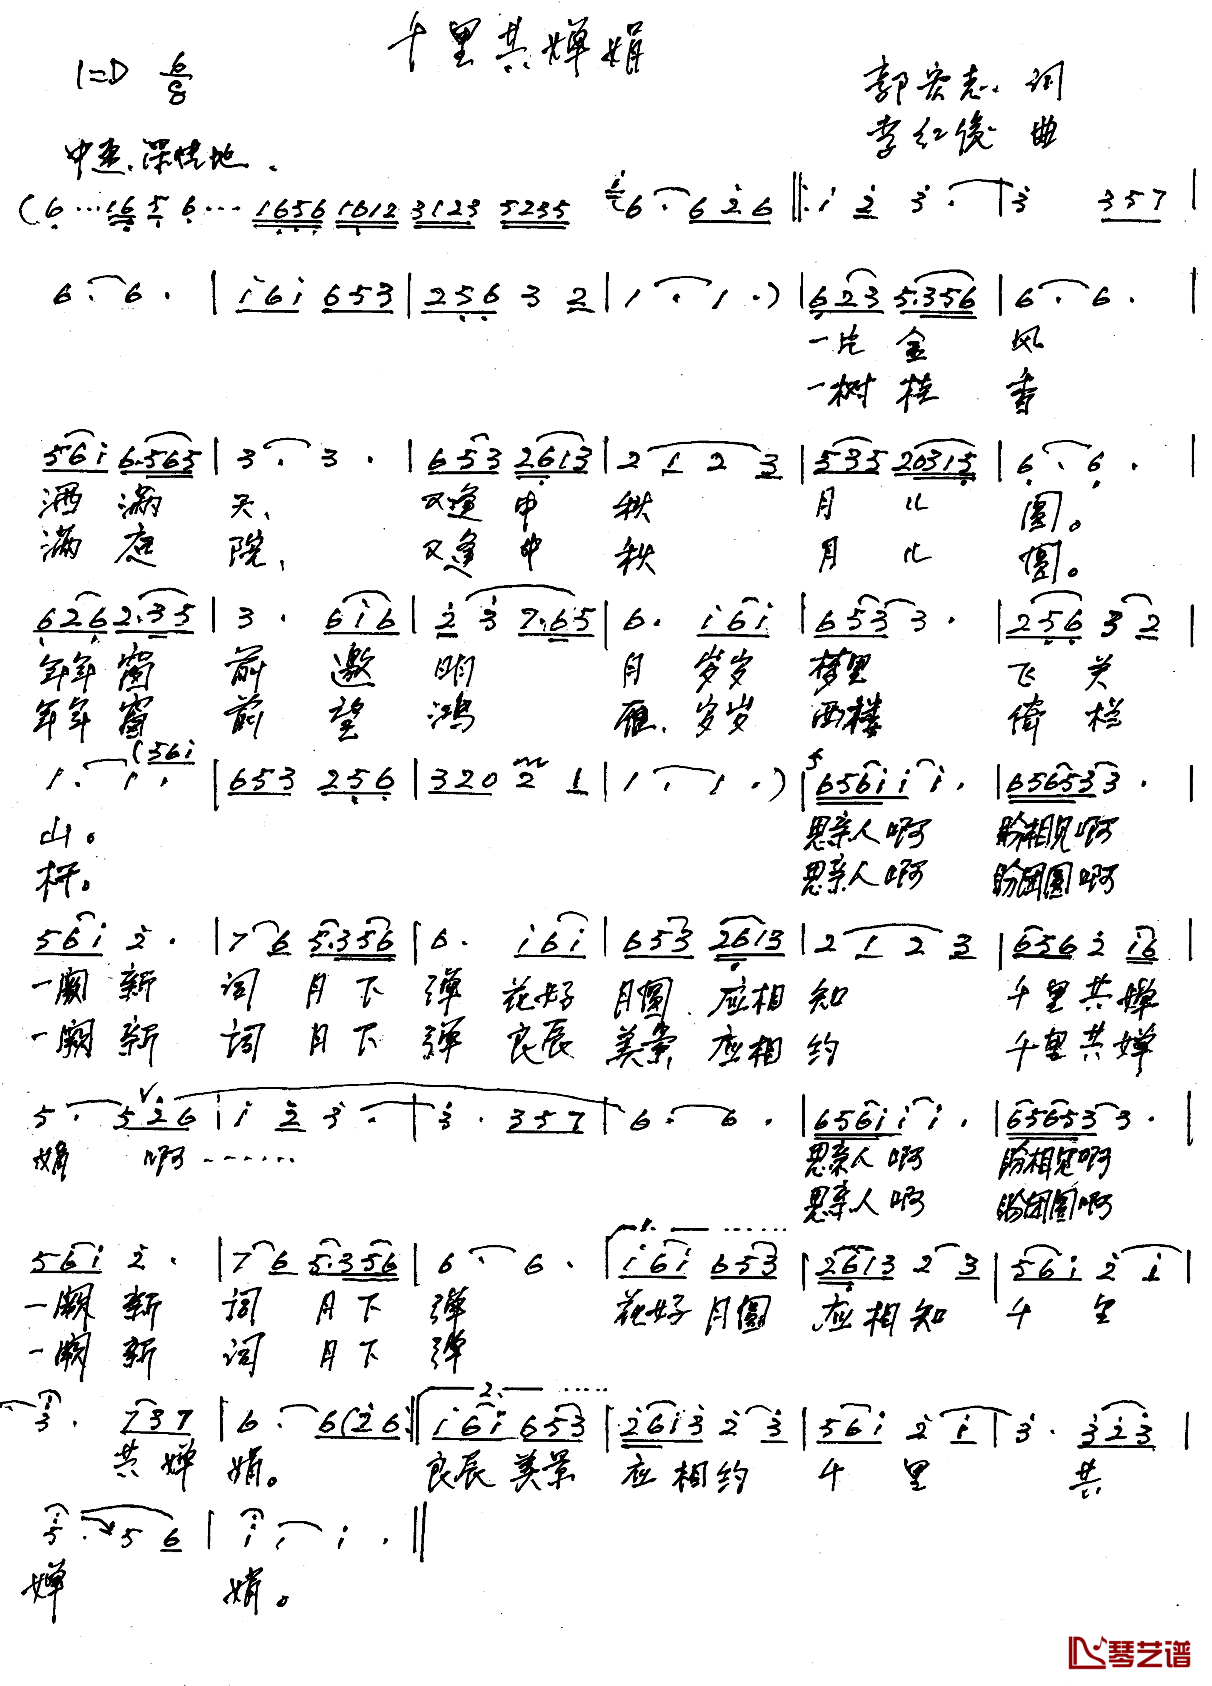 千里共婵娟
1=D 6/8
郭宏志 词
李红俊 曲
中速、深情地.
(6 ··· 16 5 6 ··· 1656 1612 3123 5235 6 · 6 2 6 ‖: i 2 3 · | 3 357 |
6 · 6 · | i6i 653 | 256 3 2 | 1 · 1 ·) | 623 5.356 | 6 · 6 · |
一片 金 风
一树 桂 香
56i 6.565 | 3 · 3 · | 653 2613 | 2 1 2 3 | 535 20315 | 6 · 6 · |
洒 满 天、 又逢 中 秋 月 儿 圆。
满 庭 院、 又逢 中 秋 月 儿 圆。
626 2.35 | 3 · 6i6 | 2 3 7.65 | 6 · i6i | 653 3 · | 256 3 2 |
年年 窗 前 邀 明 月 岁岁 梦里 飞 关
年年 窗 前 望 鸿 雁、 岁岁 西楼 倚 栏
1 · 1 · (56i | 653 256 | 320 2 1 | 1 · 1 ·) | 656i i i · | 656533 · |
山。 思亲人 啊 盼相见 啊
杆。 思亲人 啊 盼团圆 啊
56i 2 · | 7 6 5.356 | 6 · i6i | 653 2613 | 2 1 2 3 | 656 2 i6 |
一阕 新 词 月 下 弹 花好 月圆 应相 知 千里 共婵
一阕 新 词 月 下 弹 良辰 美景 应相 约 千里 共婵
5 · 5 2 6 | i 2 3 · | 3 · 357 | 6 · 6 · | 656i i i · | 656533 · |
娟 啊 ······ 思亲人 啊 盼相见 啊
思亲人 啊 盼团圆 啊
56i 2 · | 7 6 5.356 | 6 · 6 · | 1. i6i 653 | 2613 2 3 | 56i 2 i |
一阕 新 词 月 下 弹 花好 月圆 应相 知 千 里
一阕 新 词 月 下 弹
3 · 737 | 6 · 6(26 :‖ 2. i6i 653 | 26i3 2 3 | 56i 2 i | 3 · 323 |
共婵 娟。 良辰 美景 应相约 千 里 共
5 · 5 6 | i · i · ‖
婵 娟。
琴艺谱